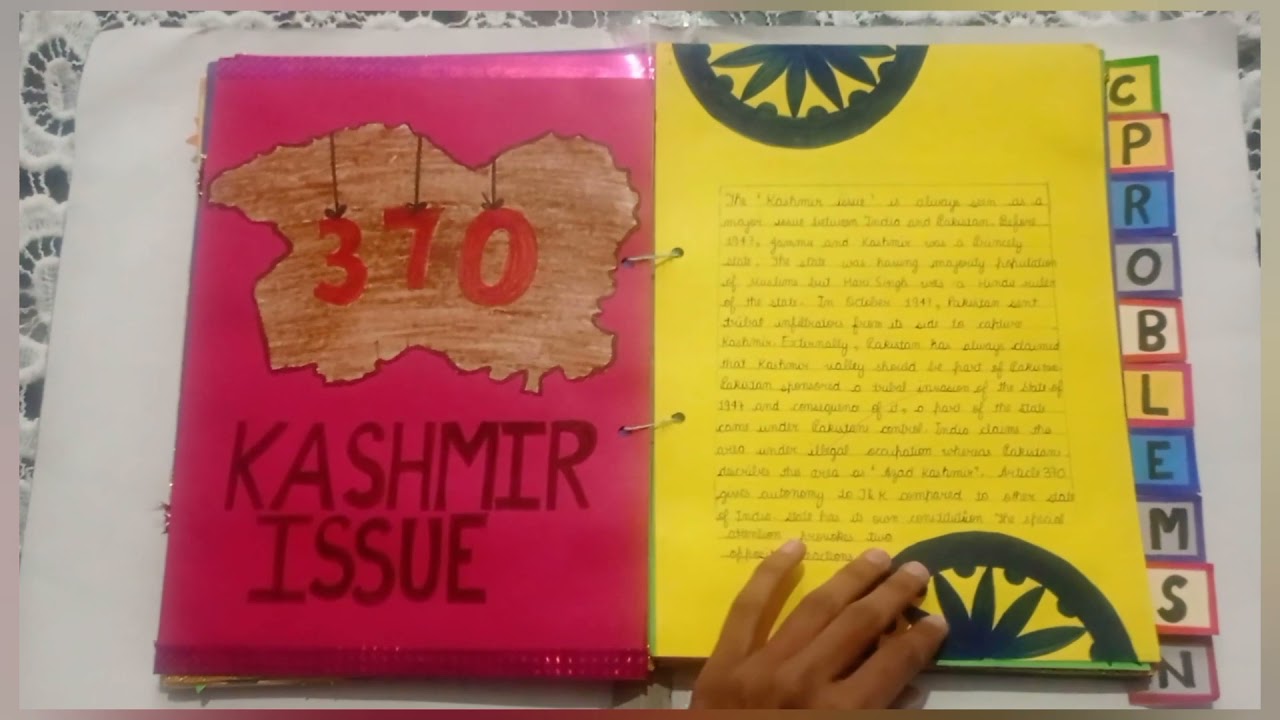 370
KASHMIR
ISSUE
The "Kashmir issue" is always seen as a
major issue between India and Pakistan. Before
1947, Jammu and Kashmir was a Princely
state. The state was having majority population
of Muslims but Hari Singh was a Hindu ruler
of the state. In October 1947, Pakistan sent
tribal infiltrators from its side to capture
Kashmir. Externally, Pakistan has always claimed
that Kashmir valley should be part of
Pakistan sponsored a tribal invasion of the state of
1947 and consequence of it, a part of the state
came under Pakistani control. India claims the
area under illegal occupation whereas Pakistani
describes this area as "Azad Kashmir". Article 370
gives autonomy to J&K compared to other state
of India. State has its own constitution The special
attention provokes two
C
P
R
O
B
L
E
M
S
N